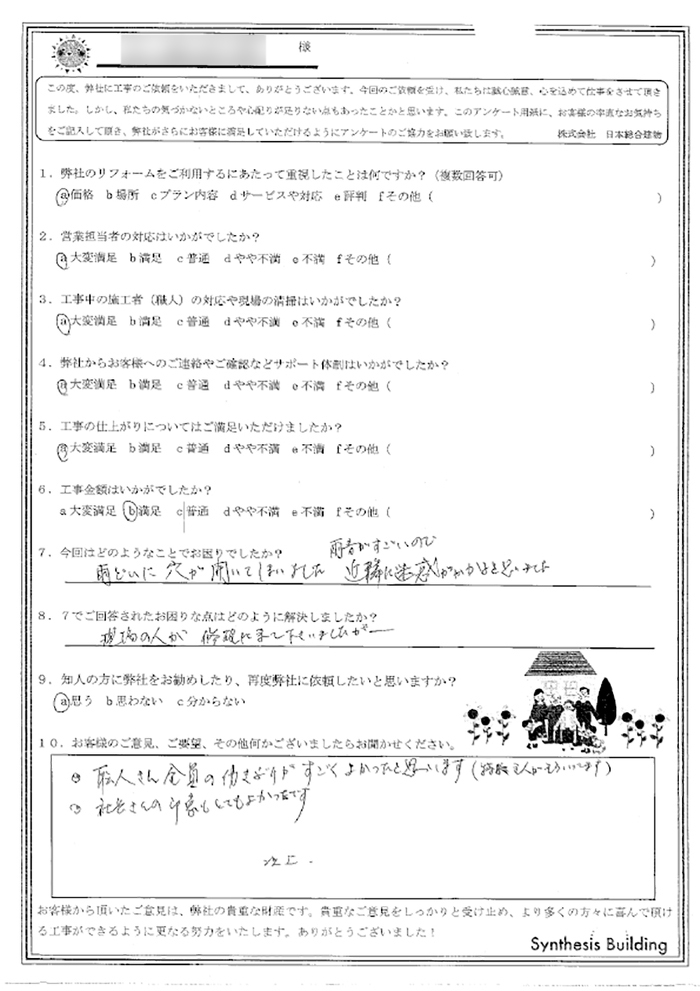 様
この度、弊社に工事のご依頼をいただきまして、ありがとうございます。今回のご依頼を受け、私たちは誠心誠意、心を込めて仕事をさせて頂き
ました。しかし、私たちの気づかないところや心配りが足りない点もあったことかと思います。このアンケート用紙に、お客様の率直なお気持ち
をご記入して頂き、弊社がさらにお客様に満足していただけるようにアンケートのご協力をお願い致します。 株式会社 日本総合建物
1．弊社のリフォームをご利用するにあたって重視したことは何ですか？（複数回答可）
a価格 b場所 cプラン内容 dサービスや対応 e評判 fその他（ ）
2．営業担当者の対応はいかがでしたか？
a大変満足 b満足 c普通 dやや不満 e不満 fその他（ ）
3．工事中の施工者（職人）の対応や現場の清掃はいかがでしたか？
a大変満足 b満足 c普通 dやや不満 e不満 fその他（ ）
4．弊社からお客様へのご連絡やご確認などサポート体制はいかがでしたか？
a大変満足 b満足 c普通 dやや不満 e不満 fその他（ ）
5．工事の仕上がりについてはご満足いただけましたか？
a大変満足 b満足 c普通 dやや不満 e不満 fその他（ ）
6．工事金額はいかがでしたか？
a大変満足 b満足 c普通 dやや不満 e不満 fその他（ ）
7．今回はどのようなことでお困りでしたか？ 雨音がすごいので
雨どいに穴が開いてしまいました 近隣に迷惑がかかると思いました
8．7でご回答されたお困りな点はどのように解決しましたか？
現場の人が 修理に
9．知人の方に弊社をお勧めしたり、再度弊社に依頼したいと思いますか？
a思う b思わない c分からない
10．お客様のご意見、ご要望、その他何かございましたらお聞かせください。
職人さん全員の働きぶりがすごくよかったと思います
社長さんの印象もとてもよかったです
以上．
お客様から頂いたご意見は、弊社の貴重な財産です。貴重なご意見をしっかりと受け止め、より多くの方々に喜んで頂け
る工事ができるように更なる努力をいたします。ありがとうございました！
Synthesis Building